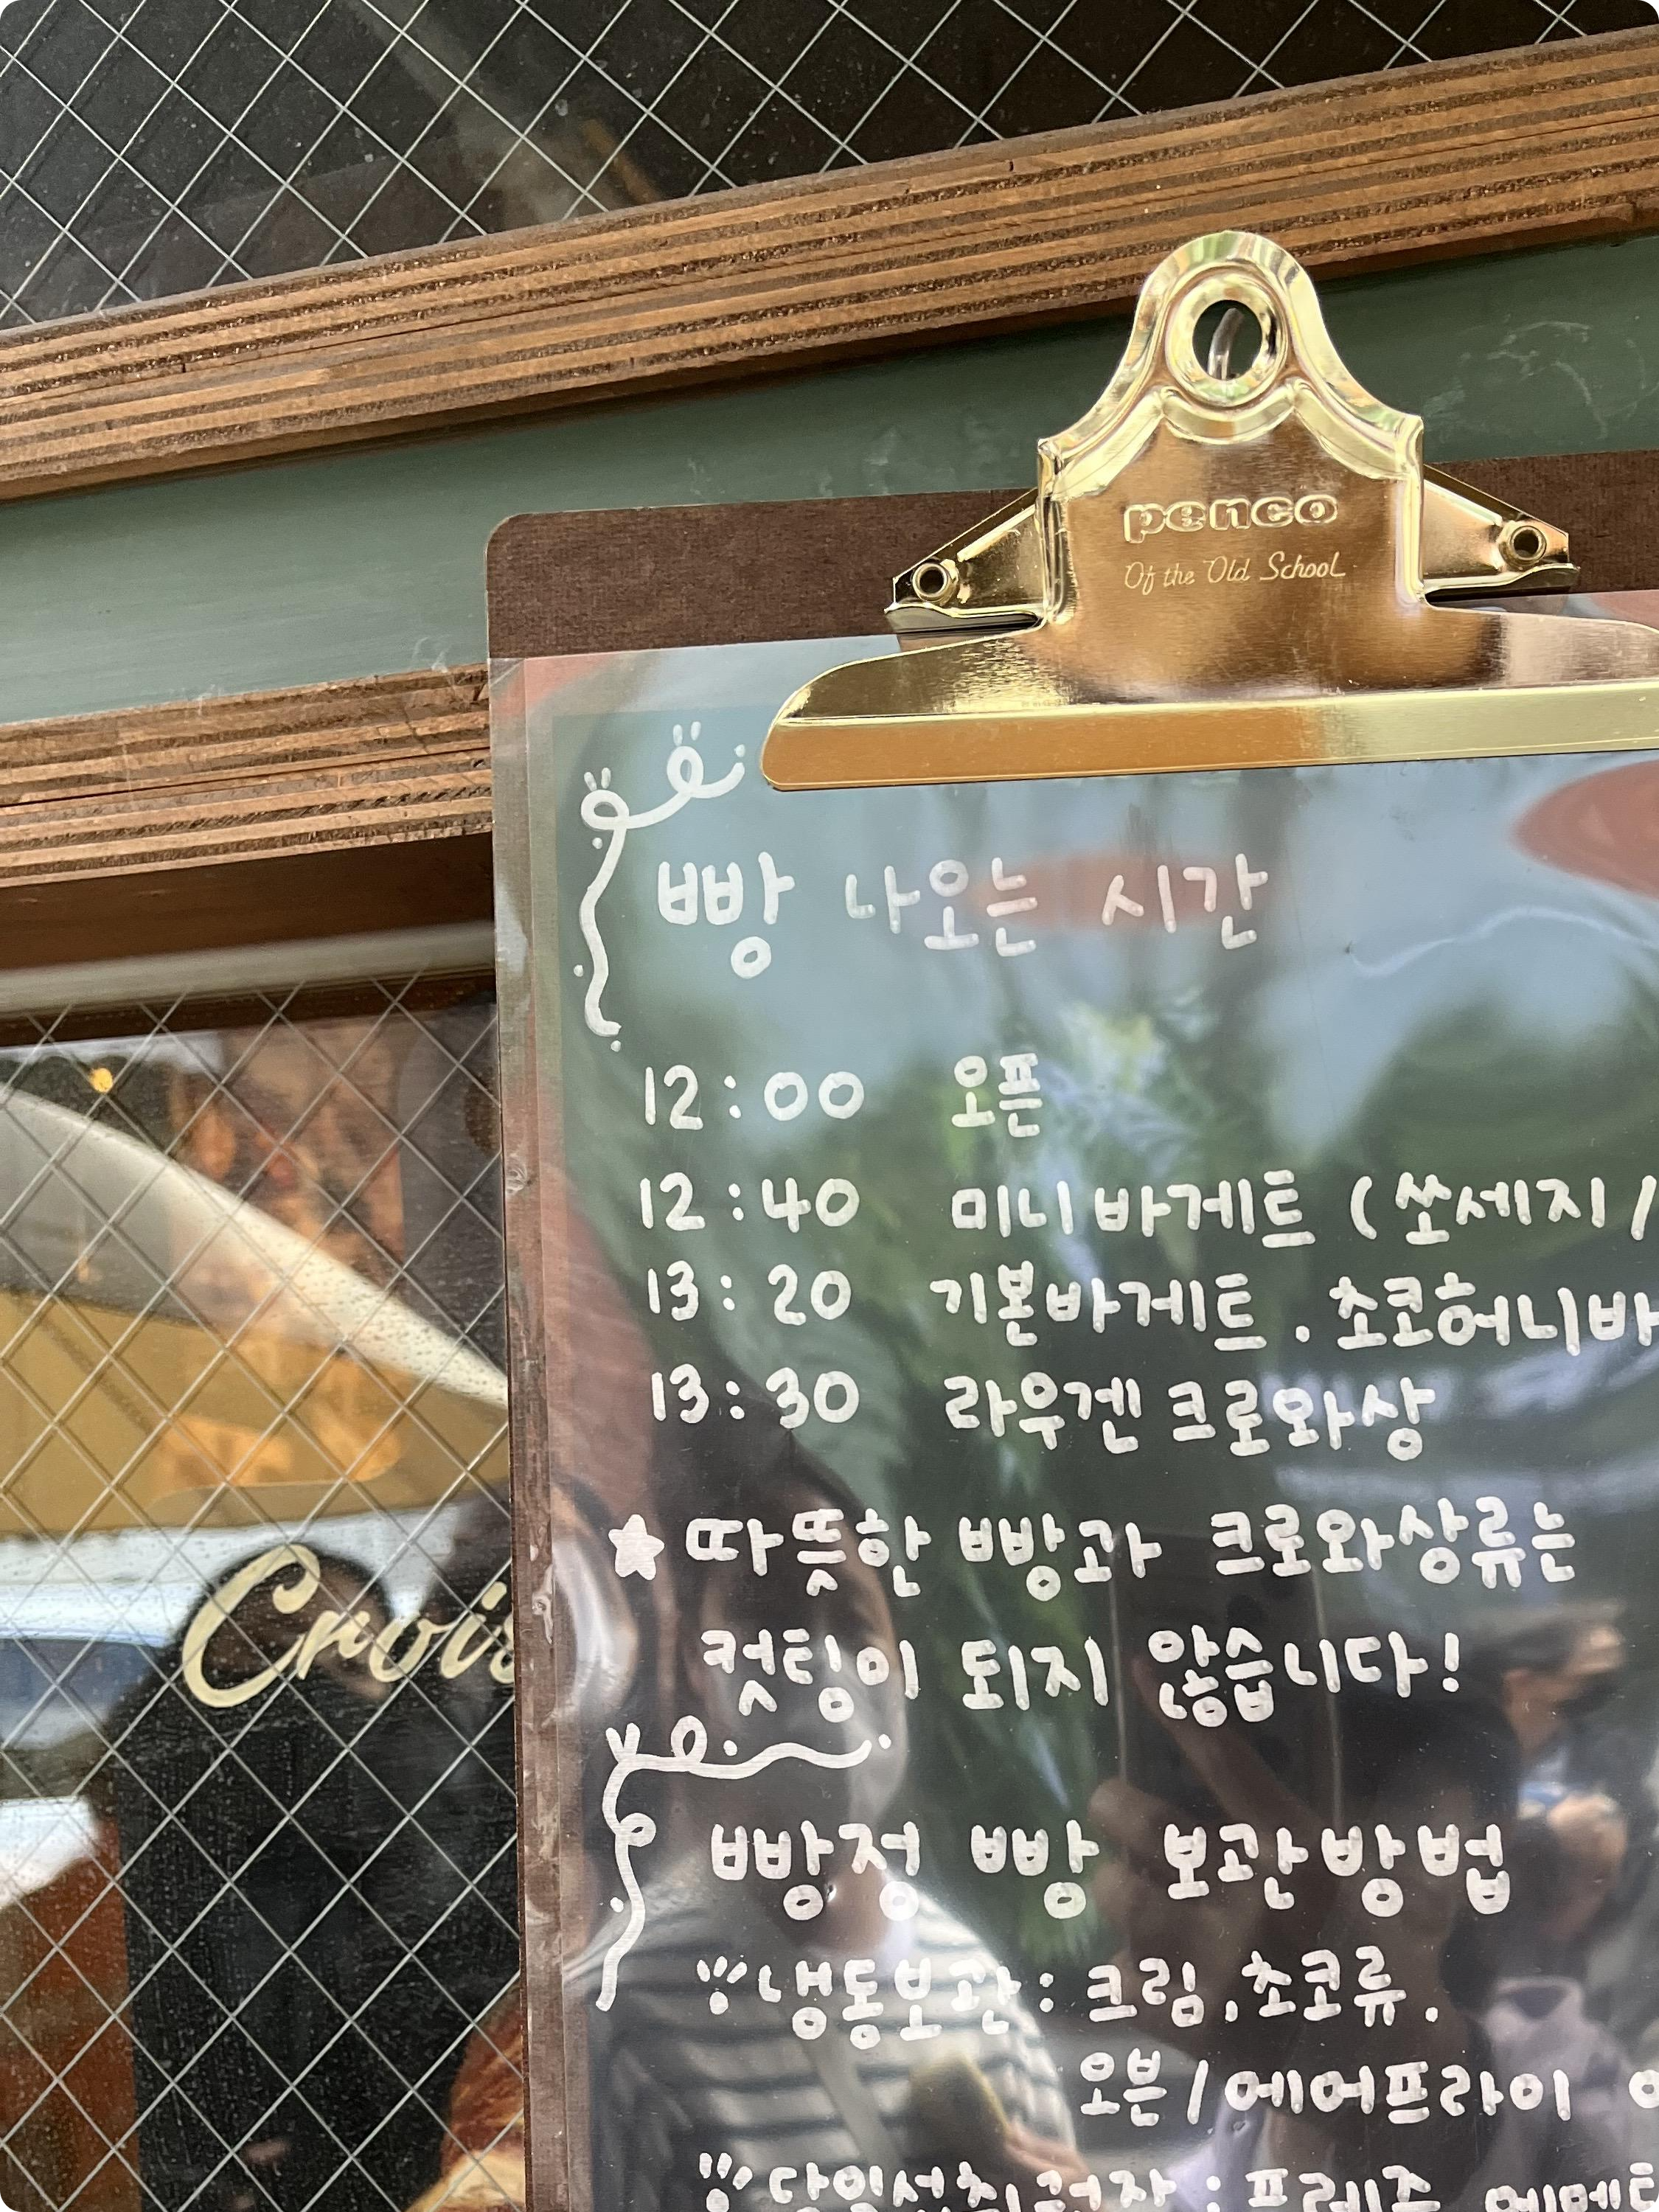 penco
Of the Old School
빵 나오는 시간
12:00 오픈
12:40 미니바게트 (쏘세지 /
13:20 기본바게트 . 초코허니바
13:30 라우겐 크로와상
★ 따뜻한 빵과 크로와상류는
컷팅이 되지 않습니다!
Crois
빵정 빵 보관방법
냉동보관 : 크림, 초코류.
오븐 / 에어프라이
당일섭취권장 : 프레즐